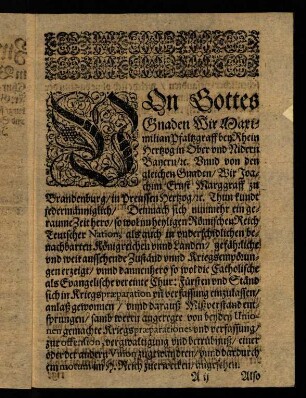 VOn Gottes
Gnaden Wir Maxi-
milian Pfaltzgraff bey Rhein
Hertzog in Ober vnd Nidern
Bayern/ ꝛc. Vnnd von den
gleichen Gnaden/ Wir Joa-
chim Ernst Marggraff zu
Brandenburg/ in Preussen Hertzog/ ꝛc. Thun kundt
jedermänniglich/ Demnach sich nunmehr ein ge-
raume Zeit hero/ so wol im heyligen Römischen Reich
Teutscher Nation, als auch in vnderschidlichen be-
nachbarten Königreichen vnnd Landen/ gefährliche
vnd weit aussehende Zuständ vnnd Kriegsempörun-
gen erzeigt/ vnnd dannenhero so wol die Catholische
als Evangelische vereinte Chur: Fürsten vnd Ständ
sich in Kriegspræparation vñ verfassung einzulassen/
anlaß gewonnen/ vnnd darauß Mißverständ ent-
sprungen/ samb weren angeregte von beyden Unio-
nen gemachte Kriegspræparationes vnd verfassung/
zur offension, vergwaltigung vnd betrübnuß/ einer
oder der andern Vnion zugewendten/ vnnd dardurch
ein motum im H. Reich zuerwecken/ angesehen.
A ij Also